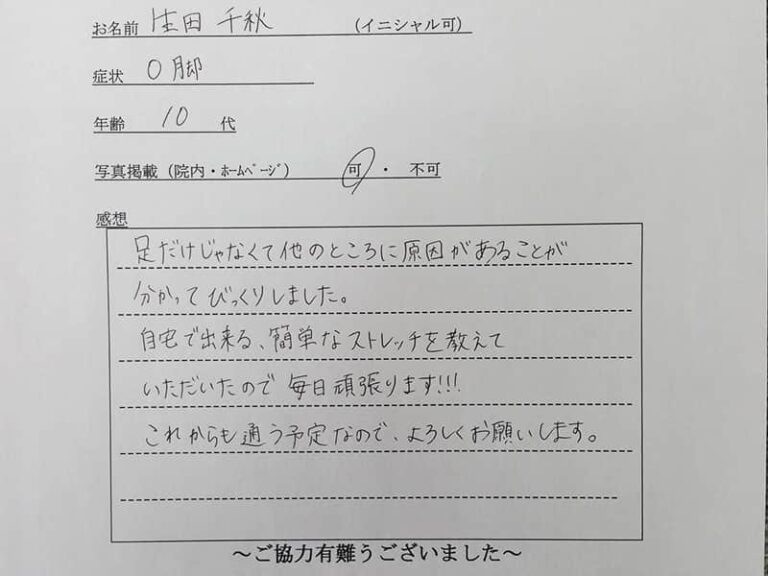 お名前 生田 千秋 (イニシャル可)
症状 O脚
年齢 10 代
写真掲載(院内・ホームページ) 可 ・ 不可
感想
足だけじゃなくて他のところに原因があることが
分かってびっくりしました。
自宅で出来る、簡単なストレッチを教えて
いただいたので毎日頑張ります!!!
これからも通う予定なので、よろしくお願いします。
～ご協力有難うございました～